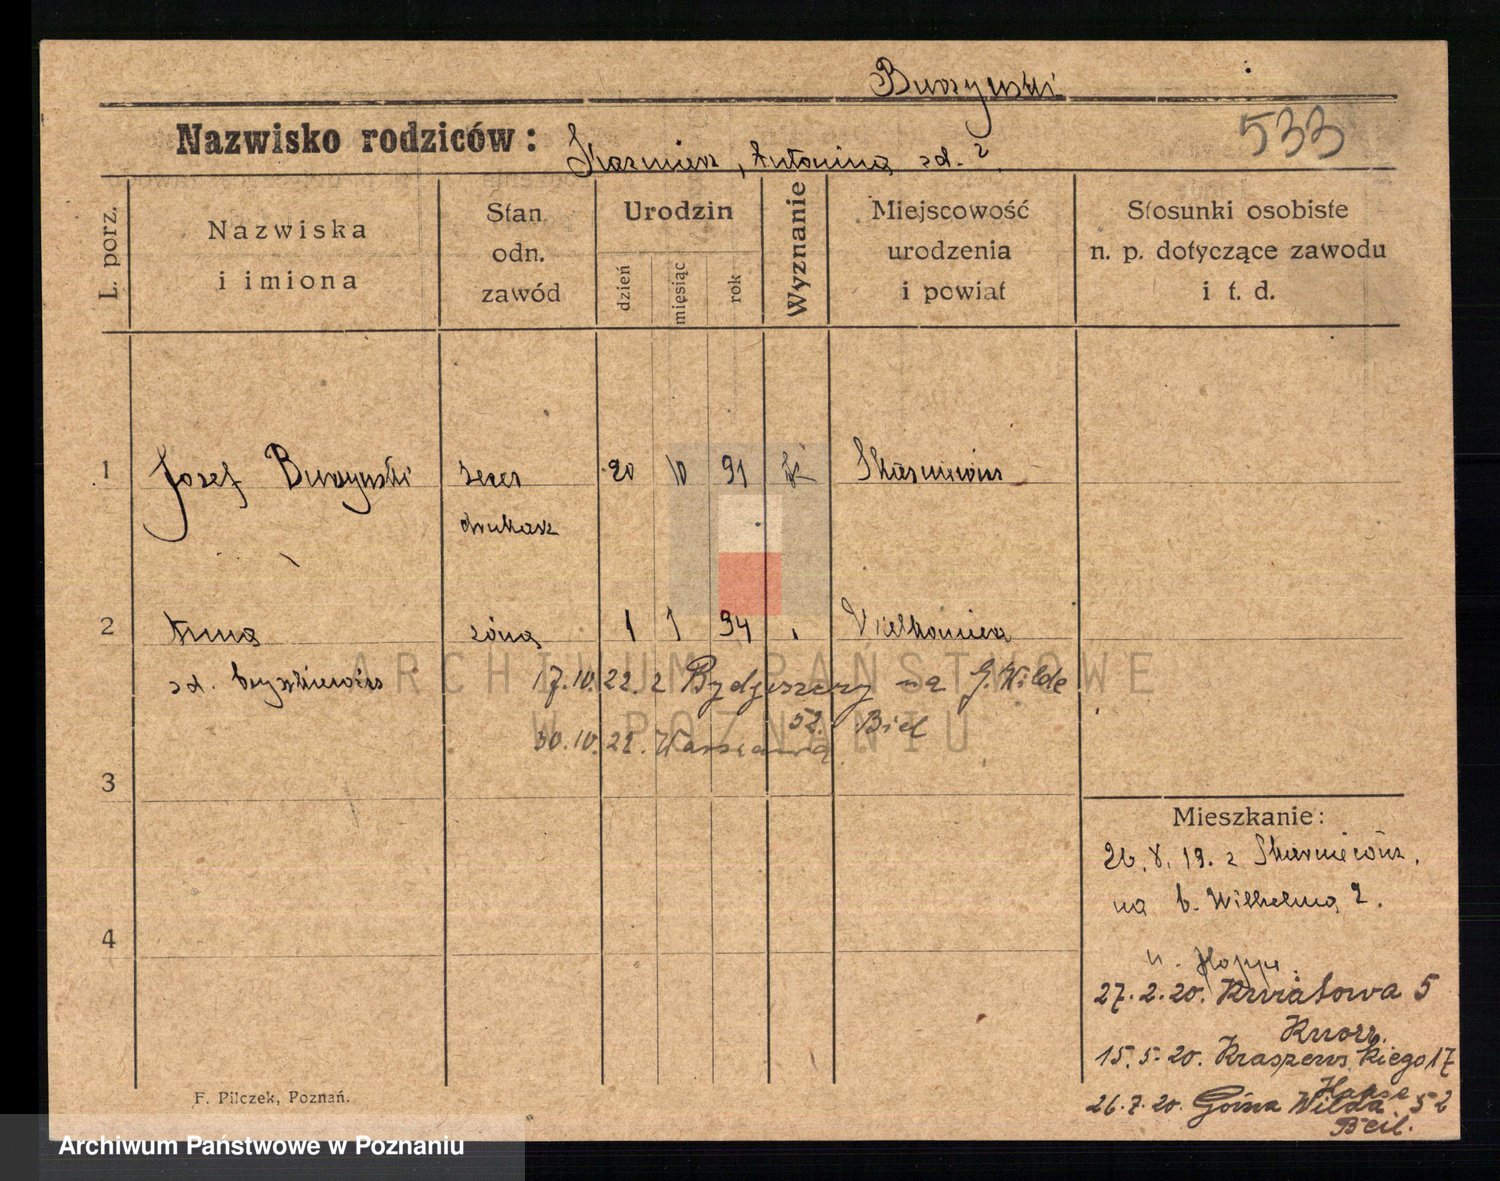 Burzyński
533
Nazwisko rodziców: Kazmierz, Antonina zd. ?
L. porz.
Nazwiska i imiona
Stan odn. zawód
Urodzin
dzień
miesiąc
rok
Wyznanie
Miejscowość urodzenia i powiat
Stosunki osobiste n. p. dotyczące zawodu i t. d.
1 Jozef Burzyński zecer 20 10 91 Skierniewice
drukarz
2 Anna żona 1 1 94
zd.
17.10.22. z Bydgoszczy na G. Wilde
52. Biel
30.10.22. Warszawa
3
Mieszkanie:
26.8.19. z Skierniewic
na b. Wilhelma 2.
4
u. Hoppe.
27.2.20. Kwiatowa 5
Knorr.
15.5.20. Kraszewskiego 17
Haase
26.7.20. Górna Wilda 52
Beil.
F. Pilczek, Poznań.
ARCHIWUM PAŃSTWOWE
W POZNANIU
Archiwum Państwowe w Poznaniu